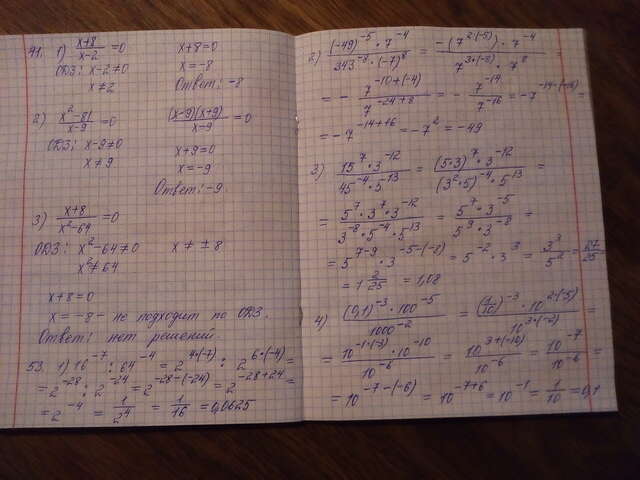 41. 1) (x+8)/(x-2) =0    x+8=0
ОДЗ: x-2≠0    x=-8
x≠2    Ответ: -8
2) (x²-81)/(x-9) =0    ((x-9)(x+9))/(x-9) =0
ОДЗ: x-9≠0    x+9=0
x≠9    x=-9
Ответ: -9
3) (x+8)/(x²-64) =0
ОДЗ: x²-64≠0    x≠±8
x²≠64
x+8=0
x=-8 - не подходит по ОДЗ.
Ответ: нет решений.
53. 1) 16⁻⁷ : 64⁻⁴ = 2^(4•(-7)) : 2^(6•(-4)) =
= 2⁻²⁸ : 2⁻²⁴ = 2^(-28-(-24)) = 2^(-28+24) =
= 2⁻⁴ = 1/2⁴ = 1/16 = 0,0625
2) ((-49)⁻⁵ • 7⁻⁴)/(343⁻⁸ • (-7)⁸) = (-(7^(2•(-5))) • 7⁻⁴)/(7^(3•(-8)) • 7⁸) =
= - 7^(-10+(-4))/7^(-24+8) = - 7⁻¹⁴/7⁻¹⁶ = -7^(-14-(-16)) =
= -7^(-14+16) = -7² = -49
3) (15⁷ • 3⁻¹²)/(45⁻⁴ • 5¹³) = ((5•3)⁷ • 3⁻¹²)/((3²•5)⁻⁴ • 5¹³) =
= (5⁷ • 3⁷ • 3⁻¹²)/(3⁻⁸ • 5⁻⁴ • 5¹³) = (5⁷ • 3⁻⁵)/(5⁹ • 3⁻⁸) =
= 5^(7-9) • 3^(-5-(-8)) = 5⁻² • 3³ = 3³/5² = 27/25 =
= 1 2/25 = 1,08
4) ((0,1)⁻³ • 100⁻⁵)/1000⁻² = ((1/10)⁻³ • 10^(2•(-5)))/10^(3•(-2)) =
= (10^(-1•(-3)) • 10⁻¹⁰)/10⁻⁶ = 10^(3+(-10))/10⁻⁶ = 10⁻⁷/10⁻⁶ =
= 10^(-7-(-6)) = 10^(-7+6) = 10⁻¹ = 1/10 = 0,1